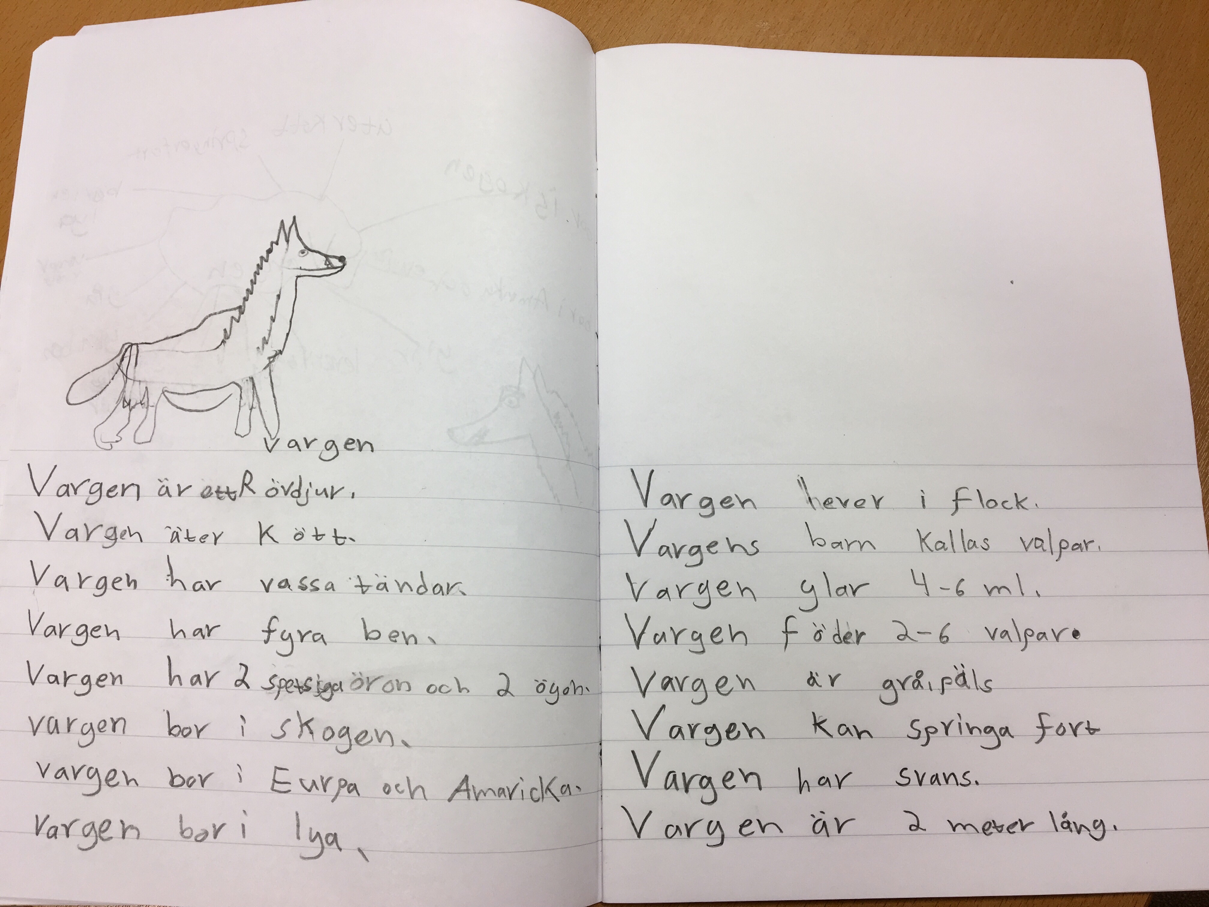 Vargen
Vargen är ett Rövdjur.
Vargen äter Kött.
Vargen har vassa tändar.
Vargen har fyra ben.
Vargen har 2 spetsiga öron och 2 ögon.
vargen bor i skogen.
vargen bor i Eurpa och Amaricka.
vargen bor i lya.
Vargen lever i flock.
Vargens barn kallas valpar.
Vargen ylar 4-6 ml.
Vargen föder 2-6 valpar.
Vargen är grå,päls
Vargen kan springa fort
Vargen har svans.
Vargen är 2 meter lång.